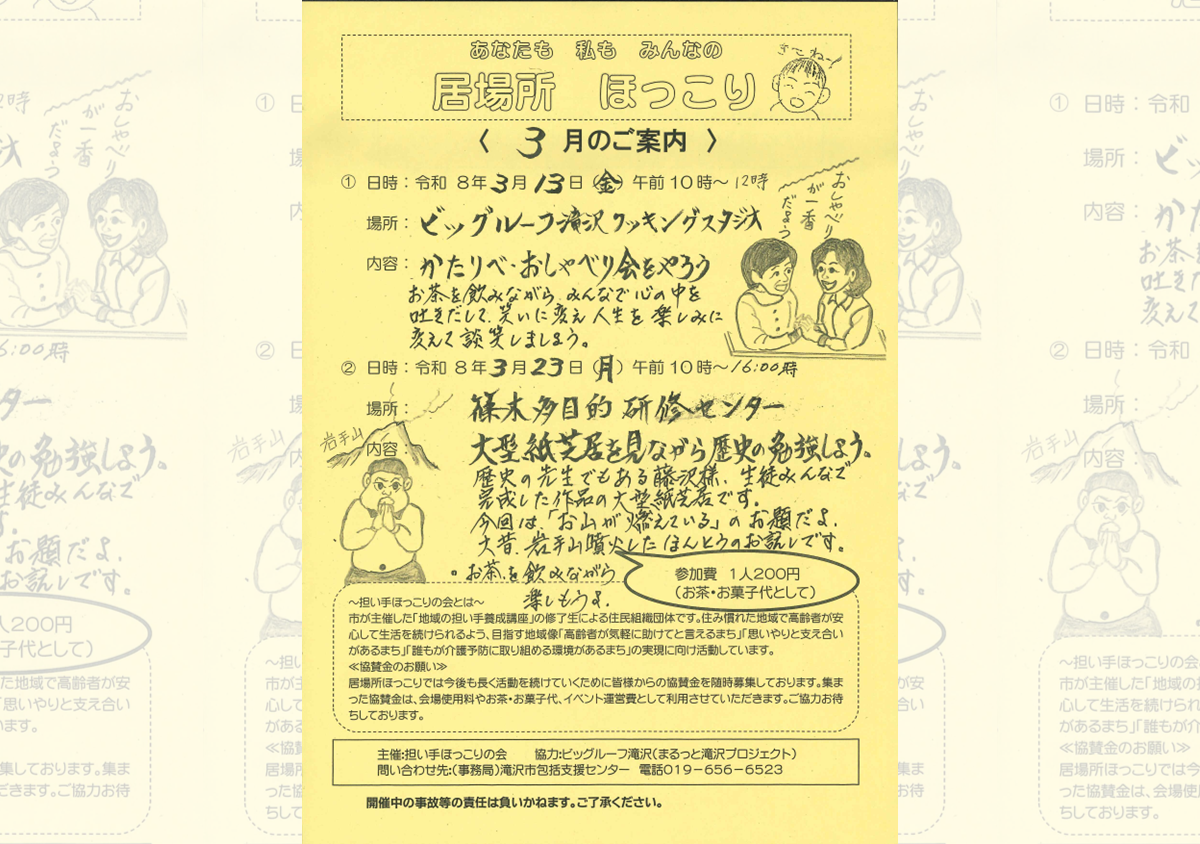 あなたも 私も みんなの
居場所 ほっこり
すてねー!
〈 3 月のご案内 〉
① 日時：令和 8年3月13日（金）午前10時～12時
場所：ビッグルーフ滝沢クッキングスタジオ
内容：かたりべ・おしゃべり会をやろう
お茶を飲みながら、みんなで心の中を
吐きだして、笑いに変え人生を楽しみに
変えて談笑しましょう。
おしゃべり
が一番
だよう
② 日時：令和 8年3月23日（月）午前10時～16:00時
場所： 篠木多目的研修センター
岩手山
内容： 大型紙芝居を見ながら歴史の勉強しよう。
歴史の先生でもある藤沢様、生徒みんなで
完成した作品の大型紙芝居です。
今回は、「お山が燃えている」のお題だよ。
大昔、岩手山噴火したほんとうのお話しです。
。お茶を飲みながら
楽しもうよ。
参加費 1人200円
（お茶・お菓子代として）
～担い手ほっこりの会とは～
市が主催した「地域の担い手養成講座」の修了生による住民組織団体です。住み慣れた地域で高齢者が安
心して生活を続けられるよう、目指す地域像「高齢者が気軽に助けてと言えるまち」「思いやりと支え合い
があるまち」「誰もが介護予防に取り組める環境があるまち」の実現に向け活動しています。
≪協賛金のお願い≫
居場所ほっこりでは今後も長く活動を続けていくために皆様からの協賛金を随時募集しております。集ま
った協賛金は、会場使用料やお茶・お菓子代、イベント運営費として利用させていただきます。ご協力お待
ちしております。
主催：担い手ほっこりの会 協力：ビッグルーフ滝沢（まるっと滝沢プロジェクト）
問い合わせ先：（事務局）滝沢市包括支援センター 電話019－656－6523
開催中の事故等の責任は負いかねます。ご了承ください。